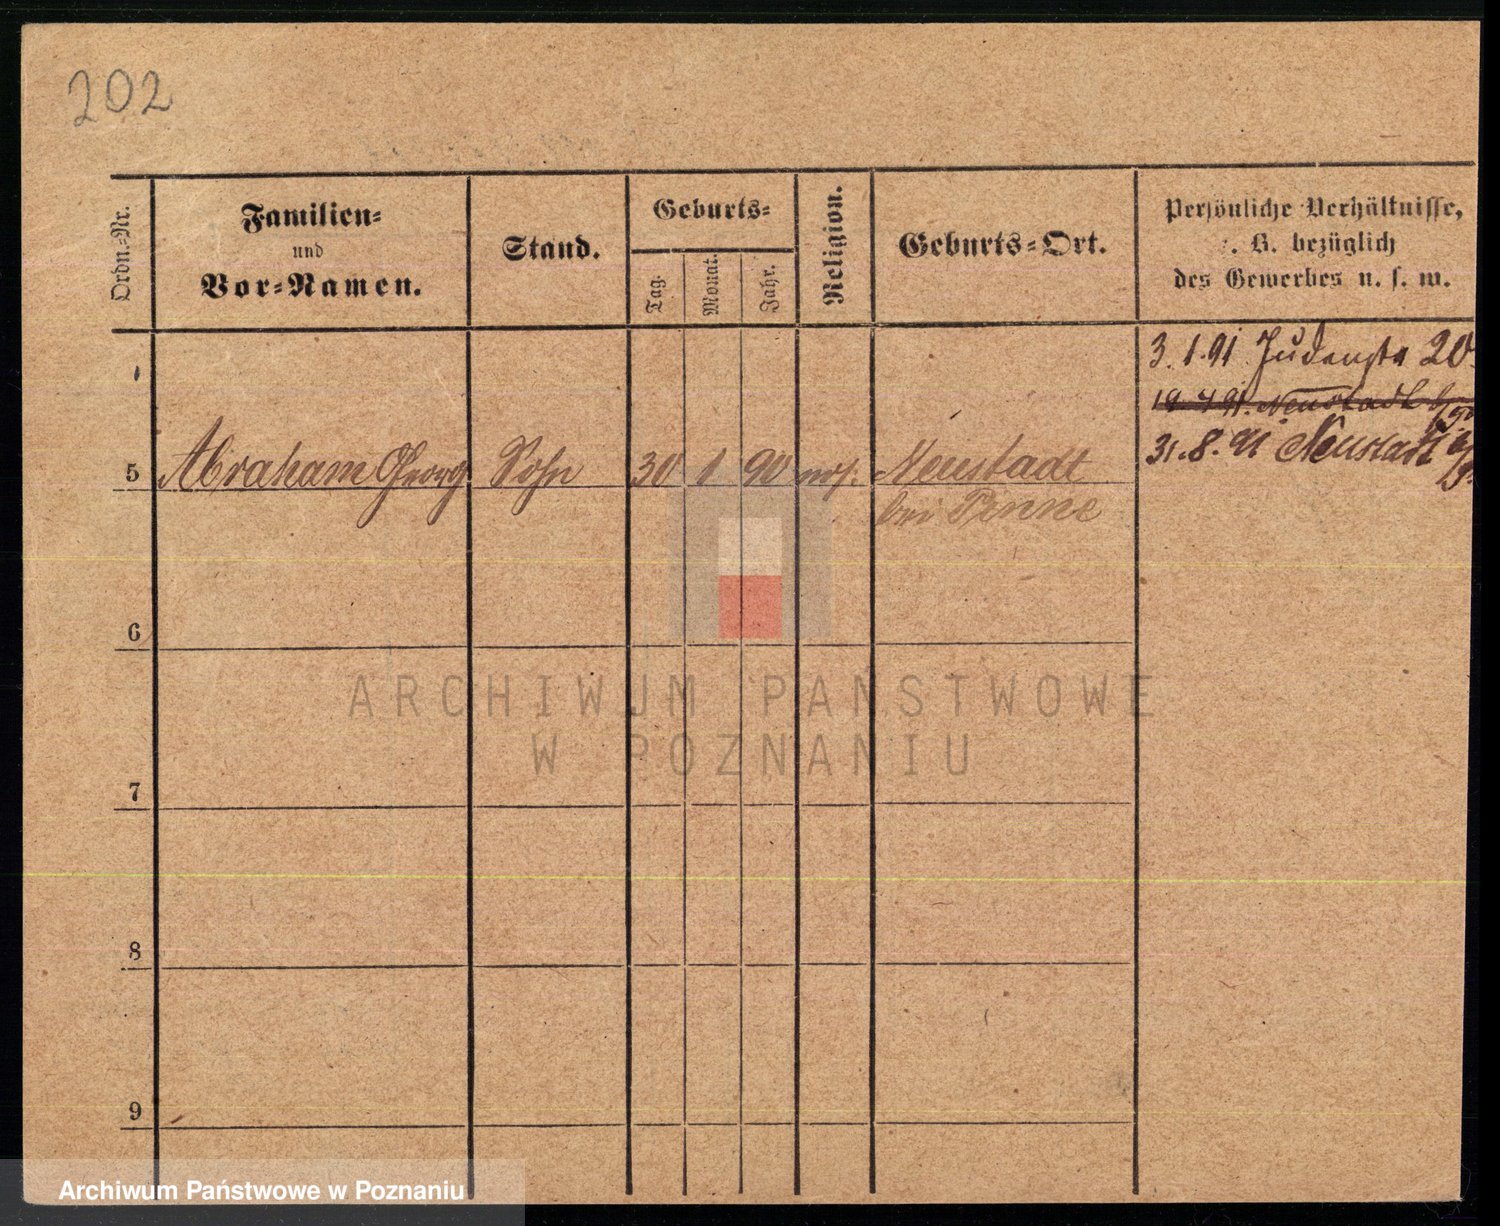 202
Ordn.-Nr.
Familien-
und
Vor-Namen.
Stand.
Geburts-
Tag.
Monat.
Jahr.
Religion.
Geburts-Ort.
Persönliche Verhältnisse,
z. B. bezüglich
des Gewerbes u. s. w.
3.1.91 Judenstr 20
19.4.91. Neustadt b/
31.8.91 Neustadt b/
5 Abraham Georg Sohn 30 1 90 mos. Neustadt
bei Pinne
6
7
8
9
ARCHIWUM PAŃSTWOWE
W POZNANIU
Archiwum Państwowe w Poznaniu